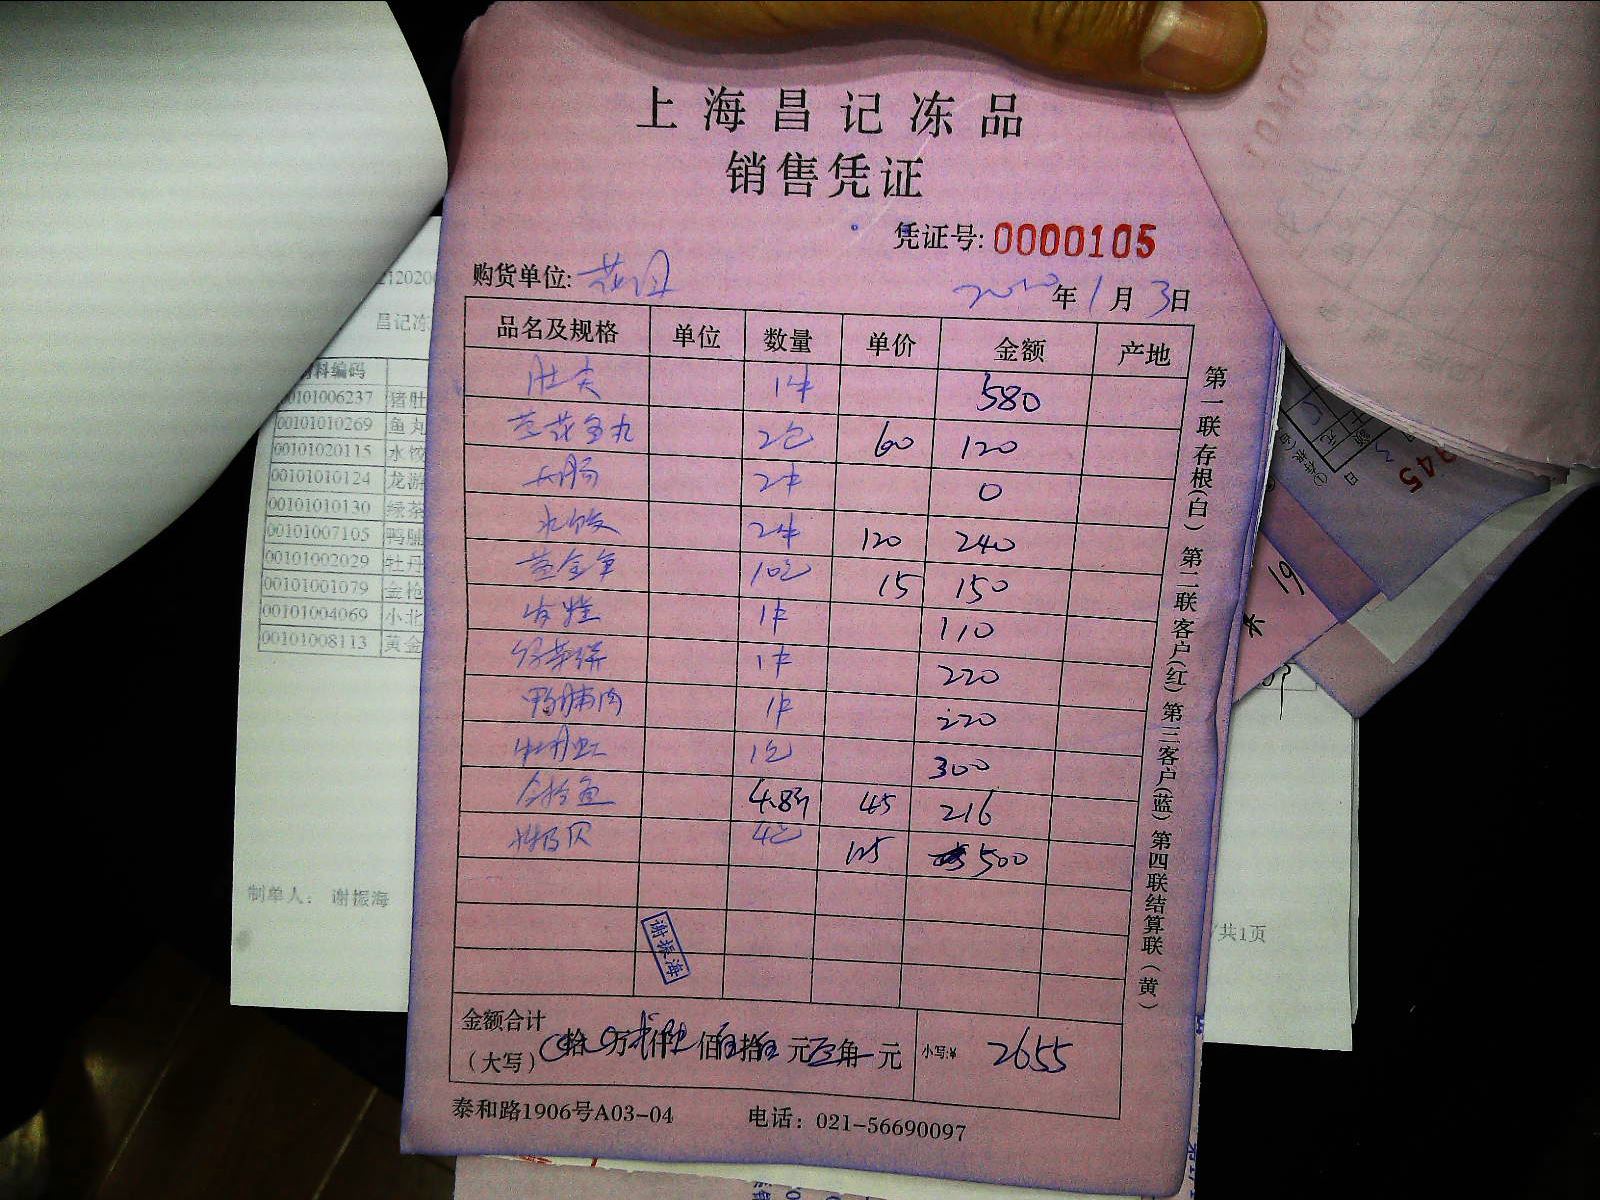 上海昌记冻品
销售凭证
凭证号: 0000105
购货单位:
年 1 月 3 日
品名及规格 单位 数量 单价 金额 产地
肚尖 1件 580
兰花鱼丸 2包 60 120
大肠 2件 0
水饺 2件 120 240
黄金单 10包 15 150
1件 110
绿茶饼 1件 220
鸭脯肉 1件 220
牡丹虾 1包 300
金枪鱼 4.8斤 45 216
北极贝 4包 125 500
谢振海
金额合计
(大写) 拾 万 仟 佰 拾 元 角 元 小写:¥ 2655
泰和路1906号A03-04 电话: 021-56690097
第一联存根(白) 第二联客户(红) 第三客户(蓝) 第四联结算联(黄)
昌记冻
料编码
00101006237 猪肚
00101010269 鱼丸
00101020115 水饺
00101010124 龙游
00101010130 绿茶
00101007105 鸭脯
00101002029 牡丹
00101001079 金枪
00101004069 小北
00101008113 黄金
制单人: 谢振海
共1页